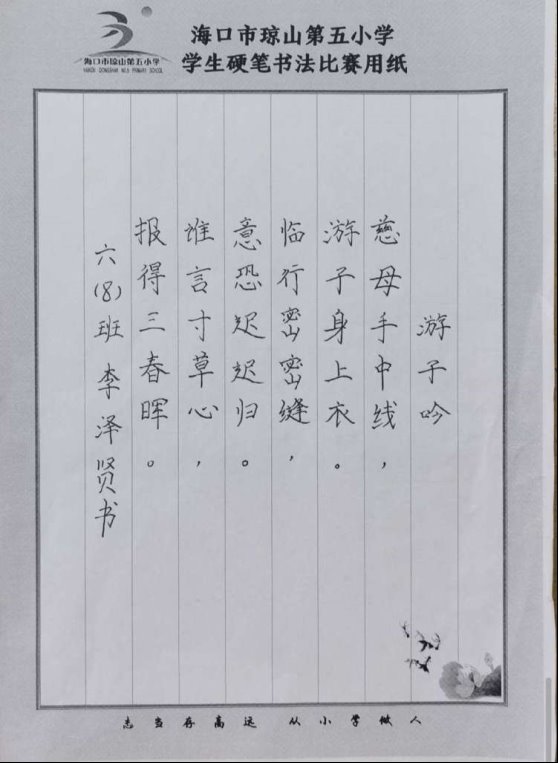 海口市琼山第五小学
学生硬笔书法比赛用纸
海口市琼山第五小学
游子吟
慈母手中线，
游子身上衣。
临行密密缝，
意恐迟迟归。
谁言寸草心，
报得三春晖。
六(8)班 李泽贤书
志当存高远 从小学做人